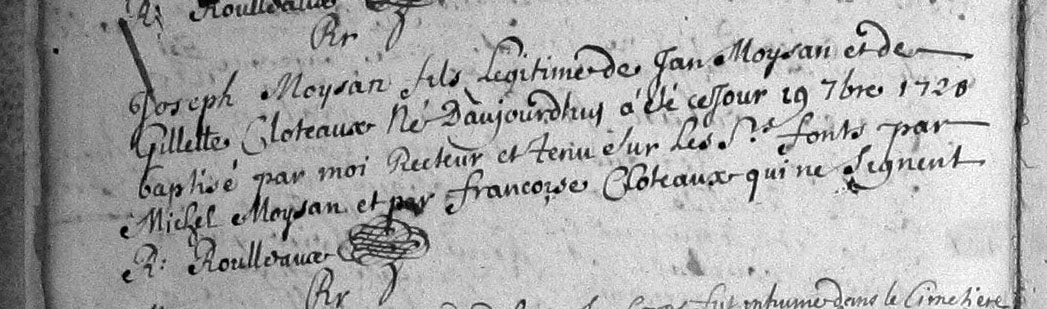 R: Roulleaux
Rr
Joseph Moysan fils Legitime de Jan Moysan et de
Gillette Cloteaux Né D'aujourdhuy a été ce Jour 19 7bre 1728
baptisé par moi Recteur et tenu sur Les Sts fonts par
Michel Moysan et par francoise Cloteaux qui ne Segnent
R: Roulleaux
Rr
fut inhumé dans le Cimetiere